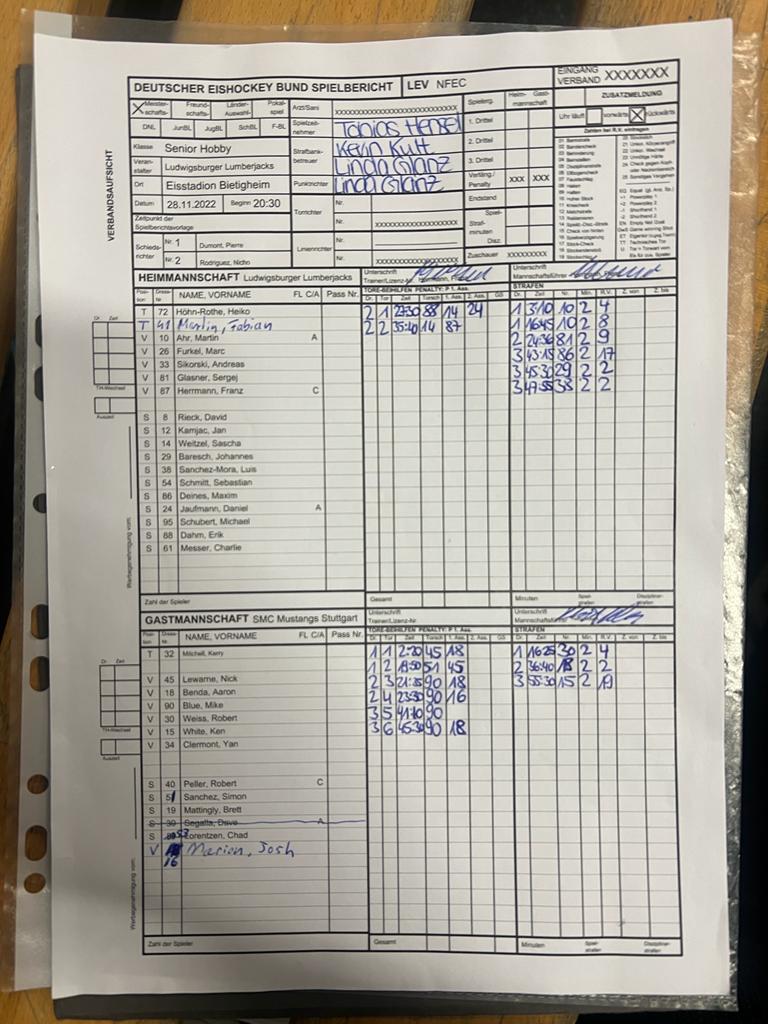 DEUTSCHER EISHOCKEY BUND SPIELBERICHT LEV NFEC EINGANG VERBAND XXXXXXX
Meister-schafts- Freund-schafts- Länder-Auswahl- Pokal-spiel
DNL JunBL JugBL SchBL F-BL
Klasse Senior Hobby
Veran-stalter Ludwigsburger Lumberjacks
Ort Eisstadion Bietigheim
Datum 28.11.2022 Beginn 20:30
Zeitpunkt der Spielberichtsvorlage
Schieds-richter Nr. 1 Dumont, Pierre
Nr. 2 Rodriguez, Nicho
Arzt/Sani xxxxxxxxxxxxxxxxxxxxxxxxxx
Spielzeit-nehmer Tobias Hensel
Kevin Kutt
Strafbank-betreuer Linda Glanz
Punktrichter Linda Glanz
Torrichter Nr.
Nr. xxxxxxxxxxxxxxxxxx
Linienrichter Nr.
Nr. xxxxxxxxxxxxxxxxxx
Spielerg. Heim- Gast-mannschaft
1. Drittel
2. Drittel
3. Drittel
Verläng./Penalty XXX XXX
Endstand
Spiel-
Straf-minuten
Disz.
Zuschauer xxxxxxxxx
ZUSATZMELDUNG
Uhr läuft vorwärts rückwärts
Zahlen bei R.V. eintragen
VERBANDSAUFSICHT
HEIMMANNSCHAFT Ludwigsburger Lumberjacks Unterschrift Trainer/Lizenz-Nr. Unterschrift Mannschaftsführer
Posi-tion Dress-Nr. NAME, VORNAME FL C/A Pass Nr. TORE-BEIHILFEN PENALTY: P 1 Ass. STRAFEN
Dr. Tor Zeit Torsch 1. Ass. 2. Ass. GS Dr. Zeit Nr. Min. R.V. Z. von Z. bis
T 72 Höhn-Rothe, Heiko 2 1 27:30 88 14 24 1 3:10 10 2 4
T 41 Martin, Fabian 2 2 35:40 14 87 1 16:45 10 2 8
V 10 Ahr, Martin A 2 24:36 81 2 9
V 26 Furkel, Marc 3 43:15 86 2 17
V 33 Sikorski, Andreas 3 45:30 29 2 2
V 81 Glasner, Sergej 3 47:55 33 2 2
V 87 Herrmann, Franz C
S 8 Rieck, David
S 12 Kamjac, Jan
S 14 Weitzel, Sascha
S 29 Baresch, Johannes
S 38 Sanchez-Mora, Luis
S 54 Schmitt, Sebastian
S 86 Deines, Maxim
S 24 Jaufmann, Daniel A
S 95 Schubert, Michael
S 88 Dahm, Erik
S 61 Messer, Charlie
Zahl der Spieler Gesamt Minuten Spiel-strafen Disziplinar-strafen
Dr. Zeit
TH-Wechsel
Auszeit
Werbegenehmigung vom:
GASTMANNSCHAFT SMC Mustangs Stuttgart Unterschrift Trainer/Lizenz-Nr. Unterschrift Mannschaftsführer
Posi-tion Dress-Nr. NAME, VORNAME FL C/A Pass Nr. TORE-BEIHILFEN PENALTY: P 1 Ass. STRAFEN
Dr. Tor Zeit Torsch 1. Ass. 2. Ass. GS Dr. Zeit Nr. Min. R.V. Z. von Z. bis
T 32 Mitchell, Kerry 1 1 2:20 45 18 1 16:25 30 2 4
1 2 19:50 51 45 2 36:40 18 2 2
V 45 Lewarne, Nick 2 3 21:35 90 18 3 55:30 15 2 19
V 18 Benda, Aaron 2 4 23:30 90 16
V 90 Blue, Mike 3 5 41:10 90
V 30 Weiss, Robert 3 6 45:30 90 18
V 15 White, Ken
V 34 Clermont, Yan
S 40 Peller, Robert C
S 51 Sanchez, Simon
S 19 Mattingly, Brett
S 39 Segatta, Dave A
S 53 Lorentzen, Chad
V 16 Marion, Josh
Zahl der Spieler Gesamt Minuten Spiel-strafen Disziplinar-strafen
Dr. Zeit
TH-Wechsel
Auszeit
Werbegenehmigung vom: